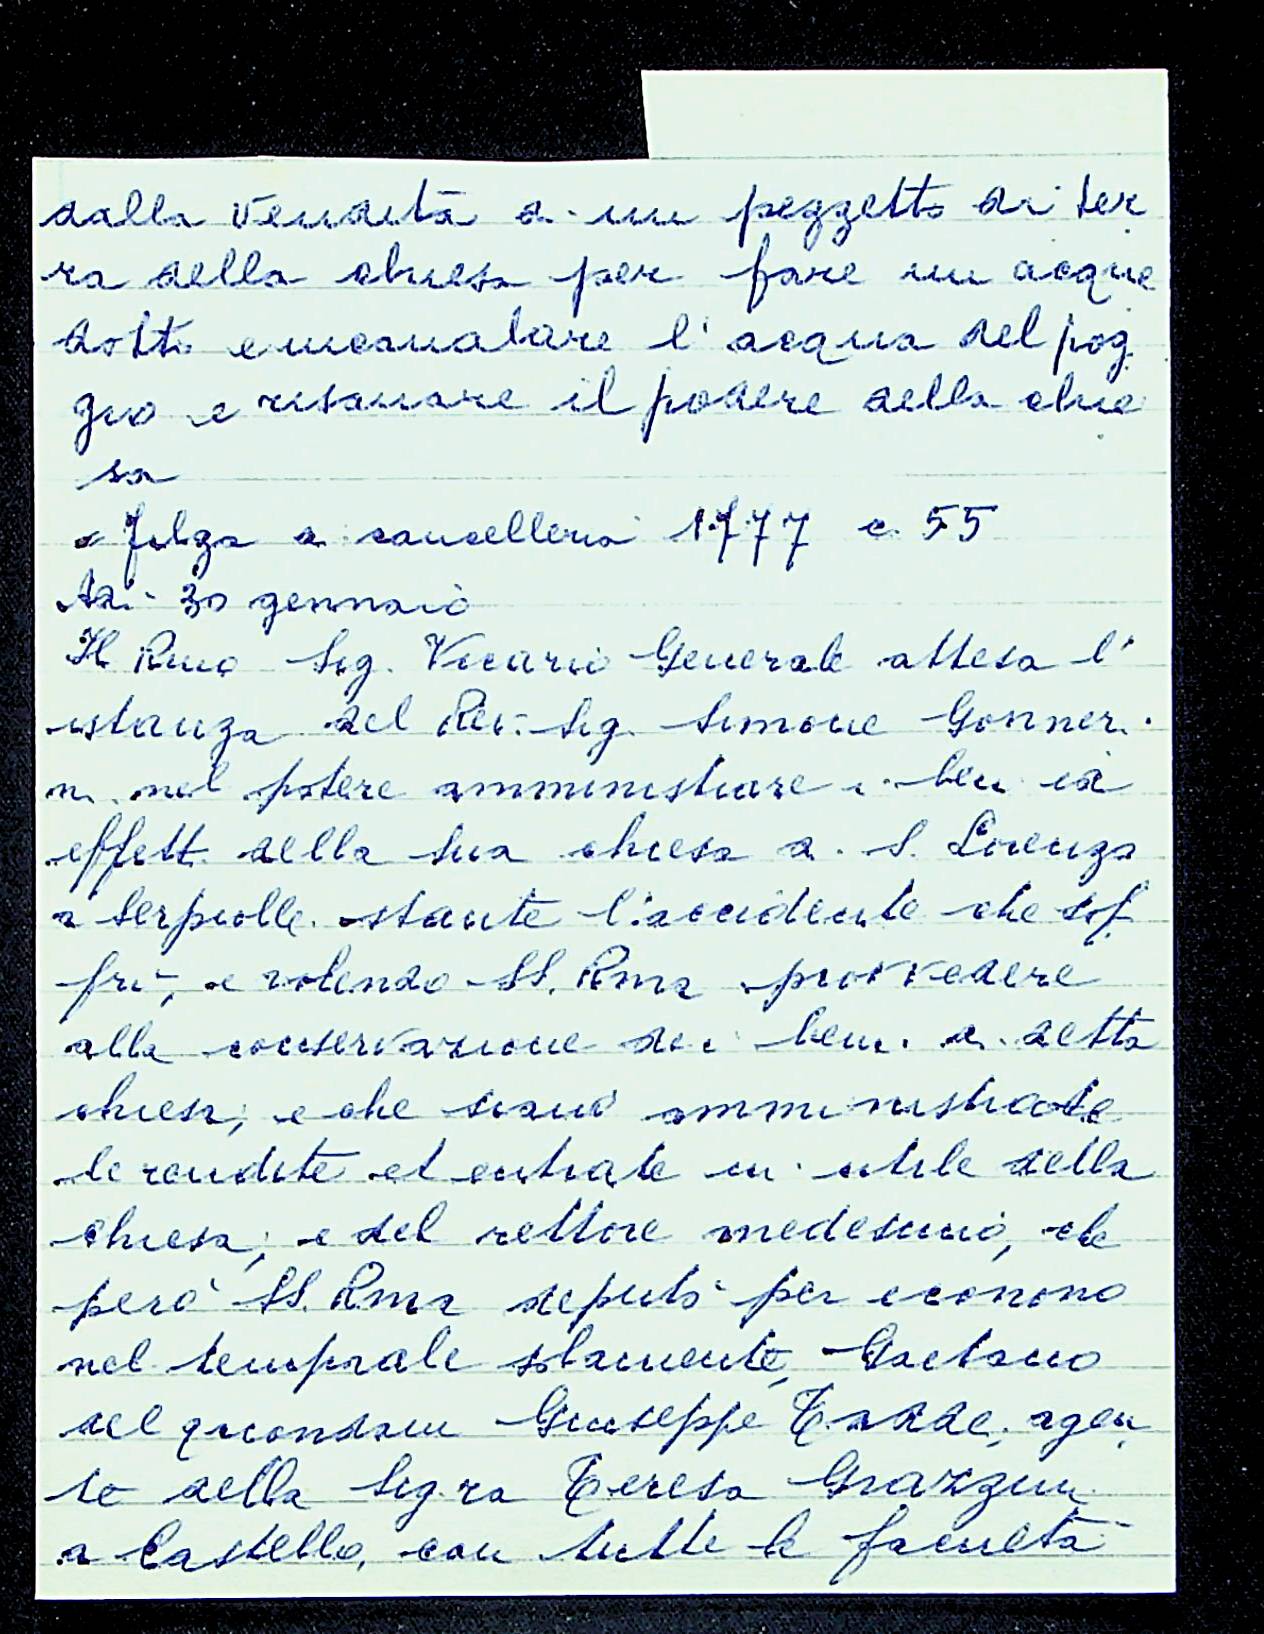 dalla vendita di un pezzetto di ter
ra della chiesa per fare un acque
dotto e incanalare l'acqua del pog
gio e risanare il podere della chie
sa
Filza di cancelleria 1777 c. 55
Adi 30 gennaio
Il Rmo Sig. Vicario Generale attesa l'
istanza del Rev. Sig. Simone Gonner
ni nel potere amministrare i beni ed
effetti della sua chiesa di S. Lorenzo
a Serpiolle stante l'accidente che sof
frì, e volendo SS. Rma provvedere
alla conservazione dei beni di detta
chiesa, e che siano amministrate
le rendite et entrate in utile della
chiesa, e del rettore medesimo, che
però SS. Rma deputò per economo
nel temporale solamente, Gaetano
del quondam Giuseppe Taddei, agen
te della Sig.ra Teresa Grazzini
a Castello, con tutte le facultà